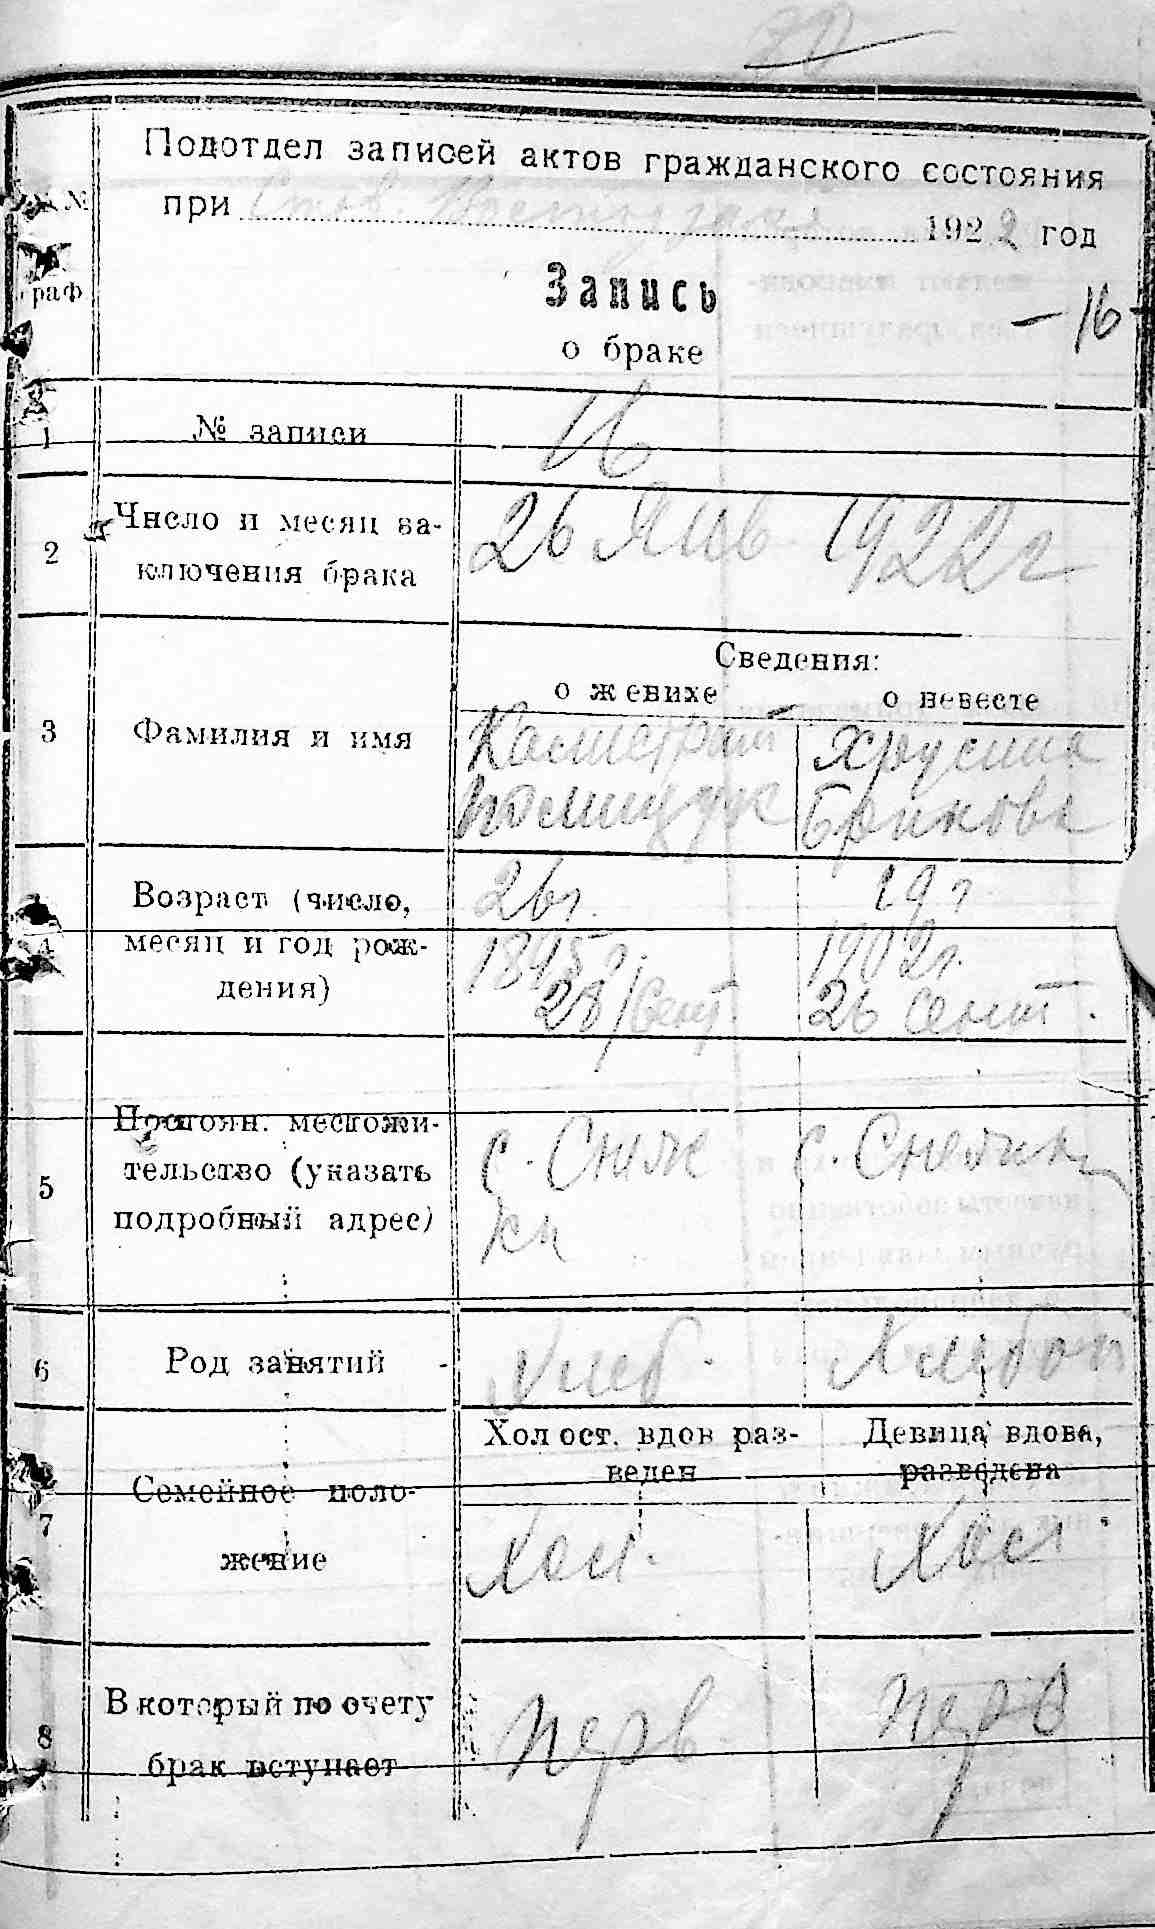 Подотдел записей актов гражданского состояния
при 1922 год
№
граф
Запись
о браке
- 16 -
1 № записи 16
2 Число и месяц за-
ключения брака
26 Янв 1922 г
Сведения:
о женихе о невесте
3 Фамилия и имя
Калистрат Хрусина
Полищук Брикова
Возраст (число,
26 г. 19 г.
4 месяц и год рож-
1895 г. 1902 г.
дения)
28/Сент. 26 Сент.
Постоян. местожи-
5 тельство (указать
подробный адрес)
с.
с.
6 Род занятий
Хлеб. Хлебоп
Холост. вдов раз-
веден
Девица, вдова,
разведена
7 Семейное поло-
жение
Хол. Хол.
В который по счету
8 брак вступает
перв. перв